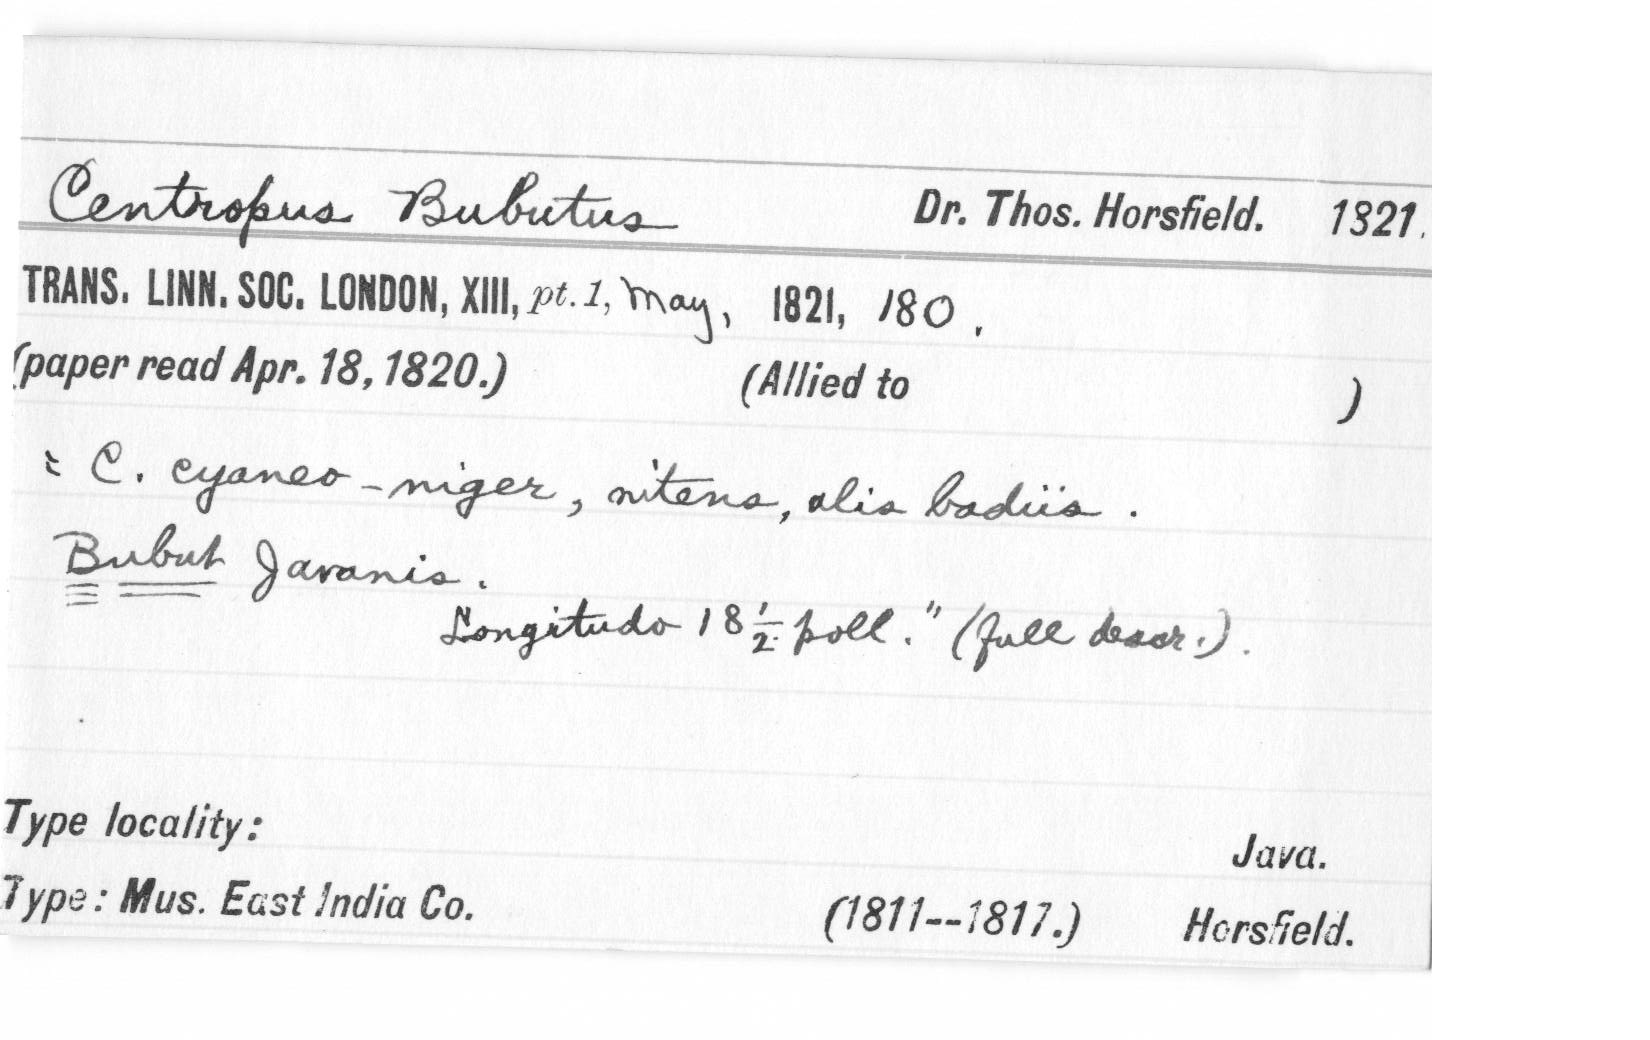 Centropus Bubutus Dr. Thos. Horsfield. 1821.
TRANS. LINN. SOC. LONDON, XIII, pt. 1, May, 1821, 180.
(paper read Apr. 18, 1820.) (Allied to )
" C. cyaneo-niger, nitens, alis badiis.
Bubut Javanis.
Longitudo 18 1/2 poll." (full descr.).
Type locality: Java.
Type: Mus. East India Co. (1811--1817.) Horsfield.